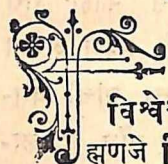 विश्वे
ह्मणजे